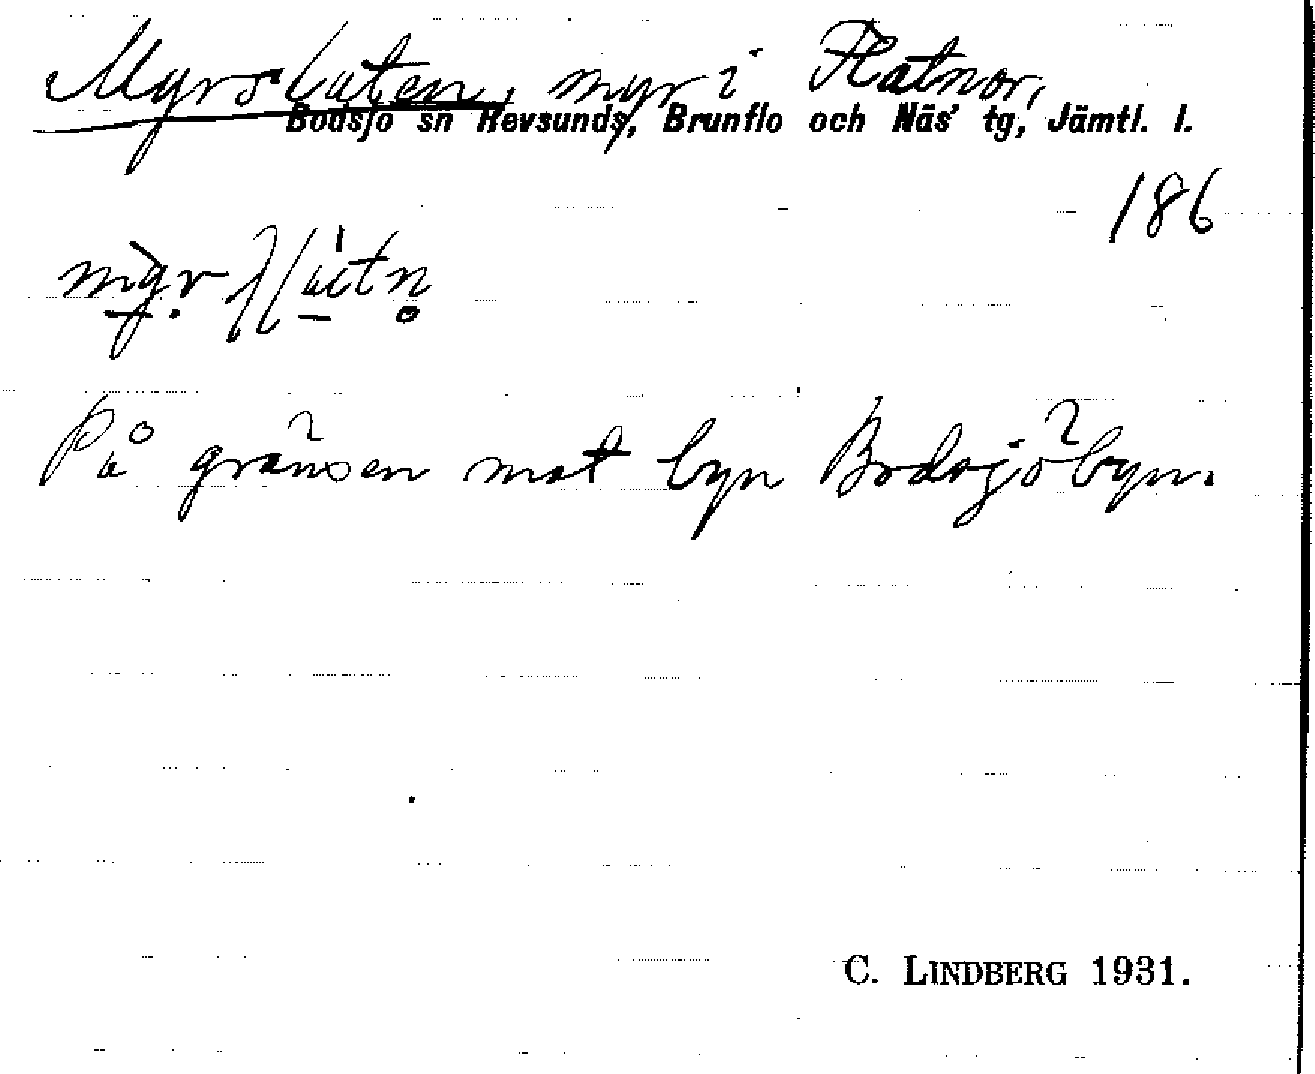 Myrslåten, myr i Flatnor,
Bodsjö sn Revsunds, Brunflo och Näs' tg, Jämtl. l.
186
På gränsen mot byn Bodsjöbyn.
C. LINDBERG 1931.